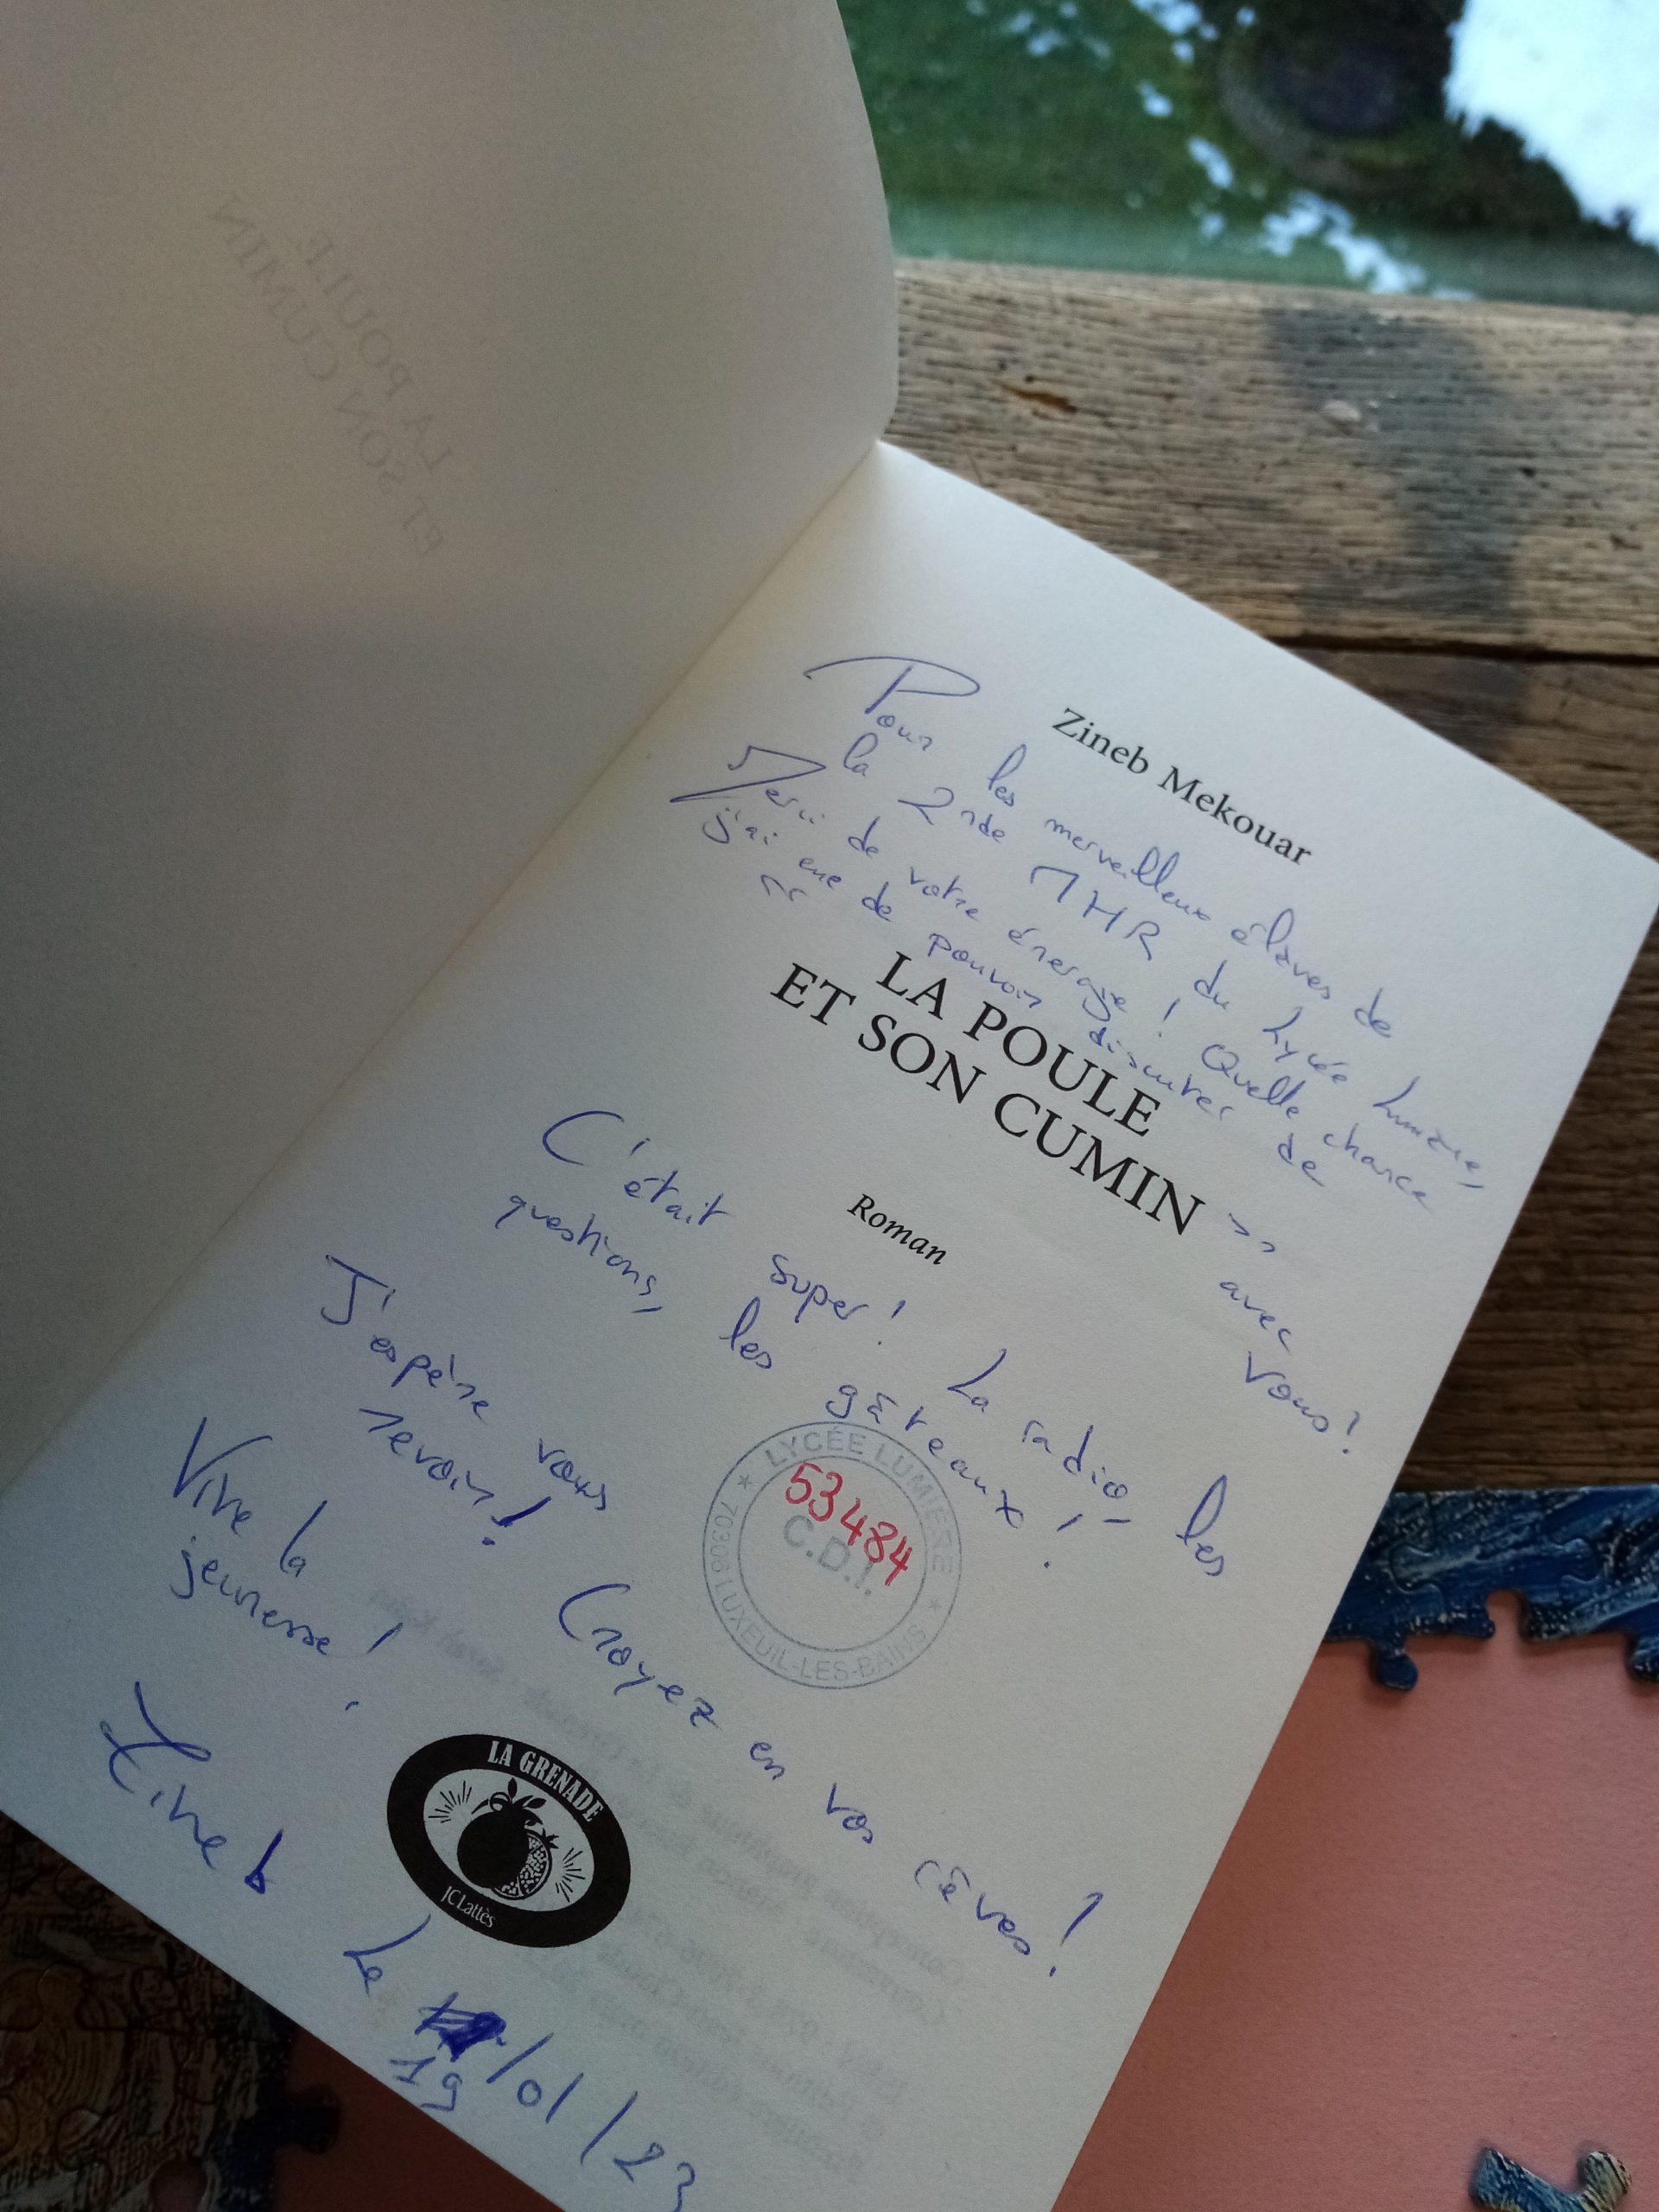 LA POULE
ET SON CUMIN
Zineb Mekouar
Pour les merveilleux élèves de
la 2nde MHR du Lycée Lumière,
Merci de votre énergie ! Quelle chance
j'ai eue de pouvoir discuter de
<< LA POULE
ET SON CUMIN >> avec vous !
Roman
C'était super ! La radio, les
questions, les gâteaux !
J'espère vous
revoir !
Croyez en vos rêves !
Vive la
jeunesse !
Zineb
Le 19/01/23
LYCÉE LUMIÈRE
53484
C.D.I.
70306 LUXEUIL-LES-BAINS
LA GRENADE
JCLattès